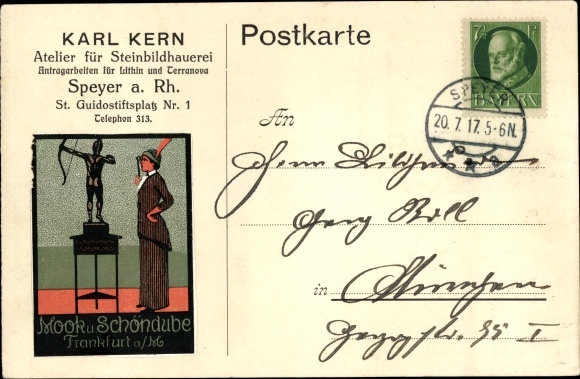 KARL KERN
Atelier für Steinbildhauerei
Antragarbeiten für Lithin und Terranova
Speyer a. Rh.
St. Guidostiftsplatz Nr. 1
Telephon 313.
Mook u Schöndube
Frankfurt a/M
Postkarte
7½ Pf
BAYERN
SPEYER
20. 7. 17. 5-6N.
An
Herrn
Georg
in München
35 I